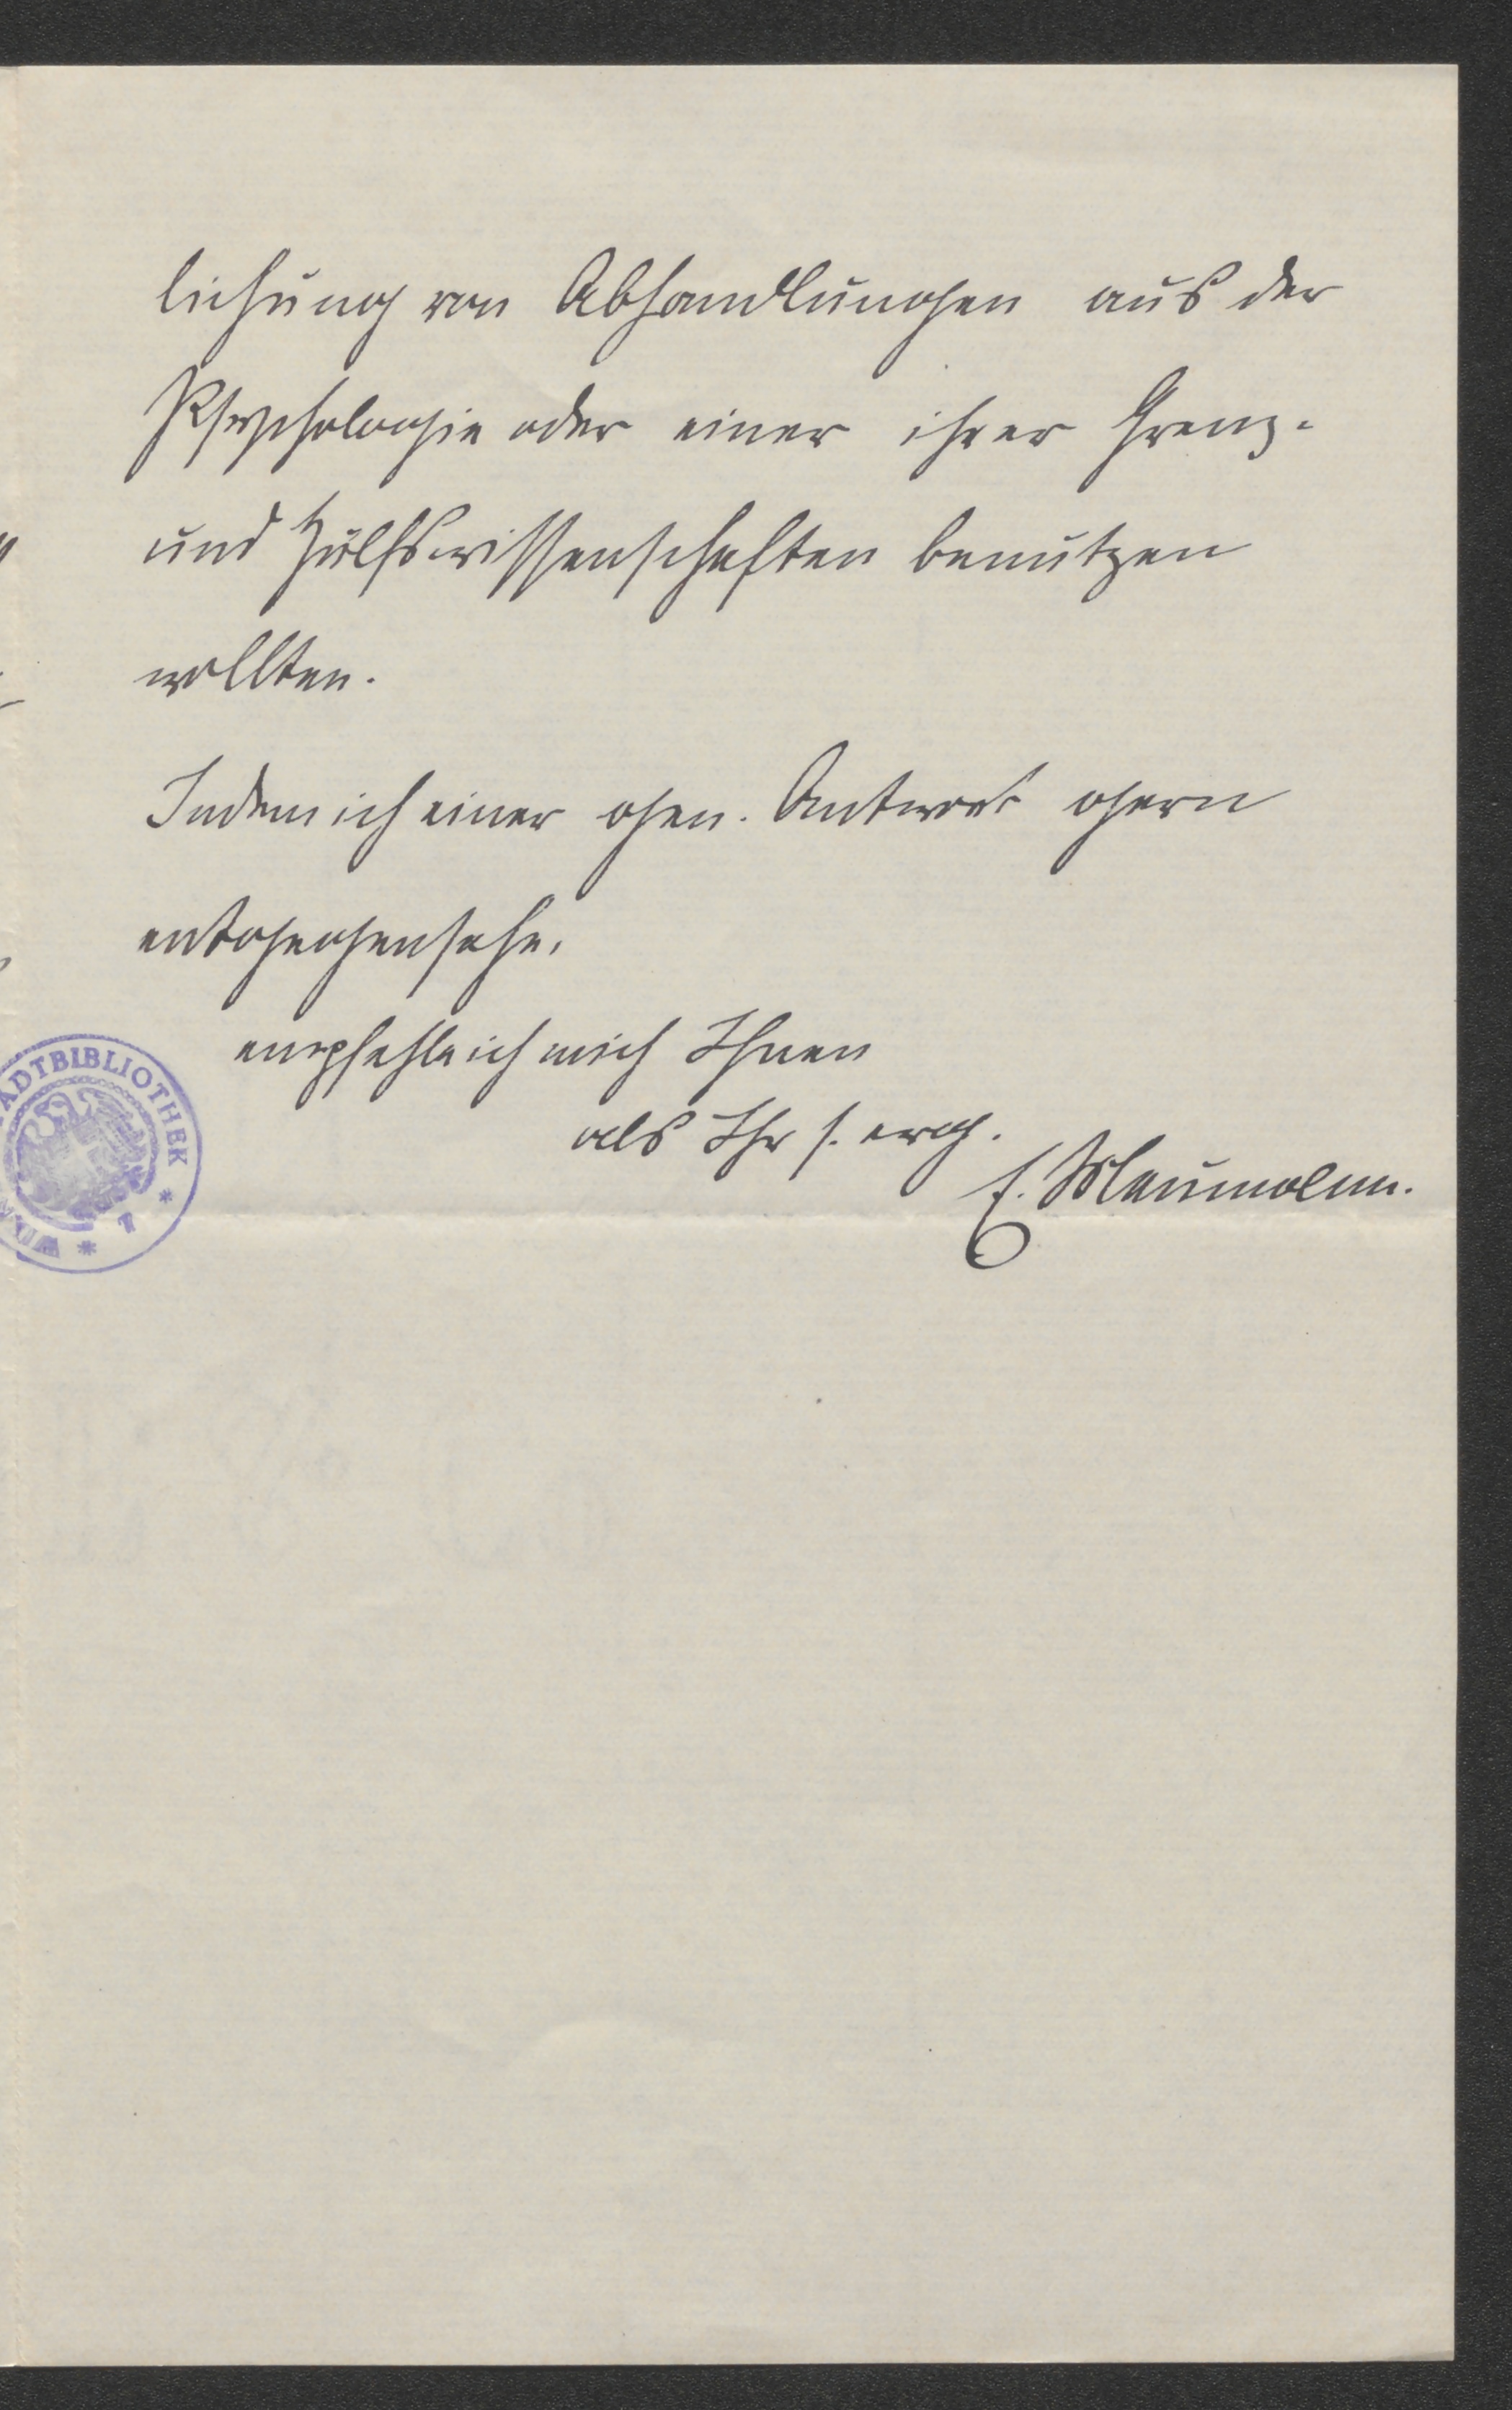 lichung von Abhandlungen aus der
Psychologie oder einer ihrer Grenz-
und Hülfswissenschaften benutzen
wollten.
Indem ich einer gen. Antwort gern
entgegensehe,
empfehle ich mich Ihnen
als Ihr s. erg.
E. Meumann.
ADTBIBLIOTHEK